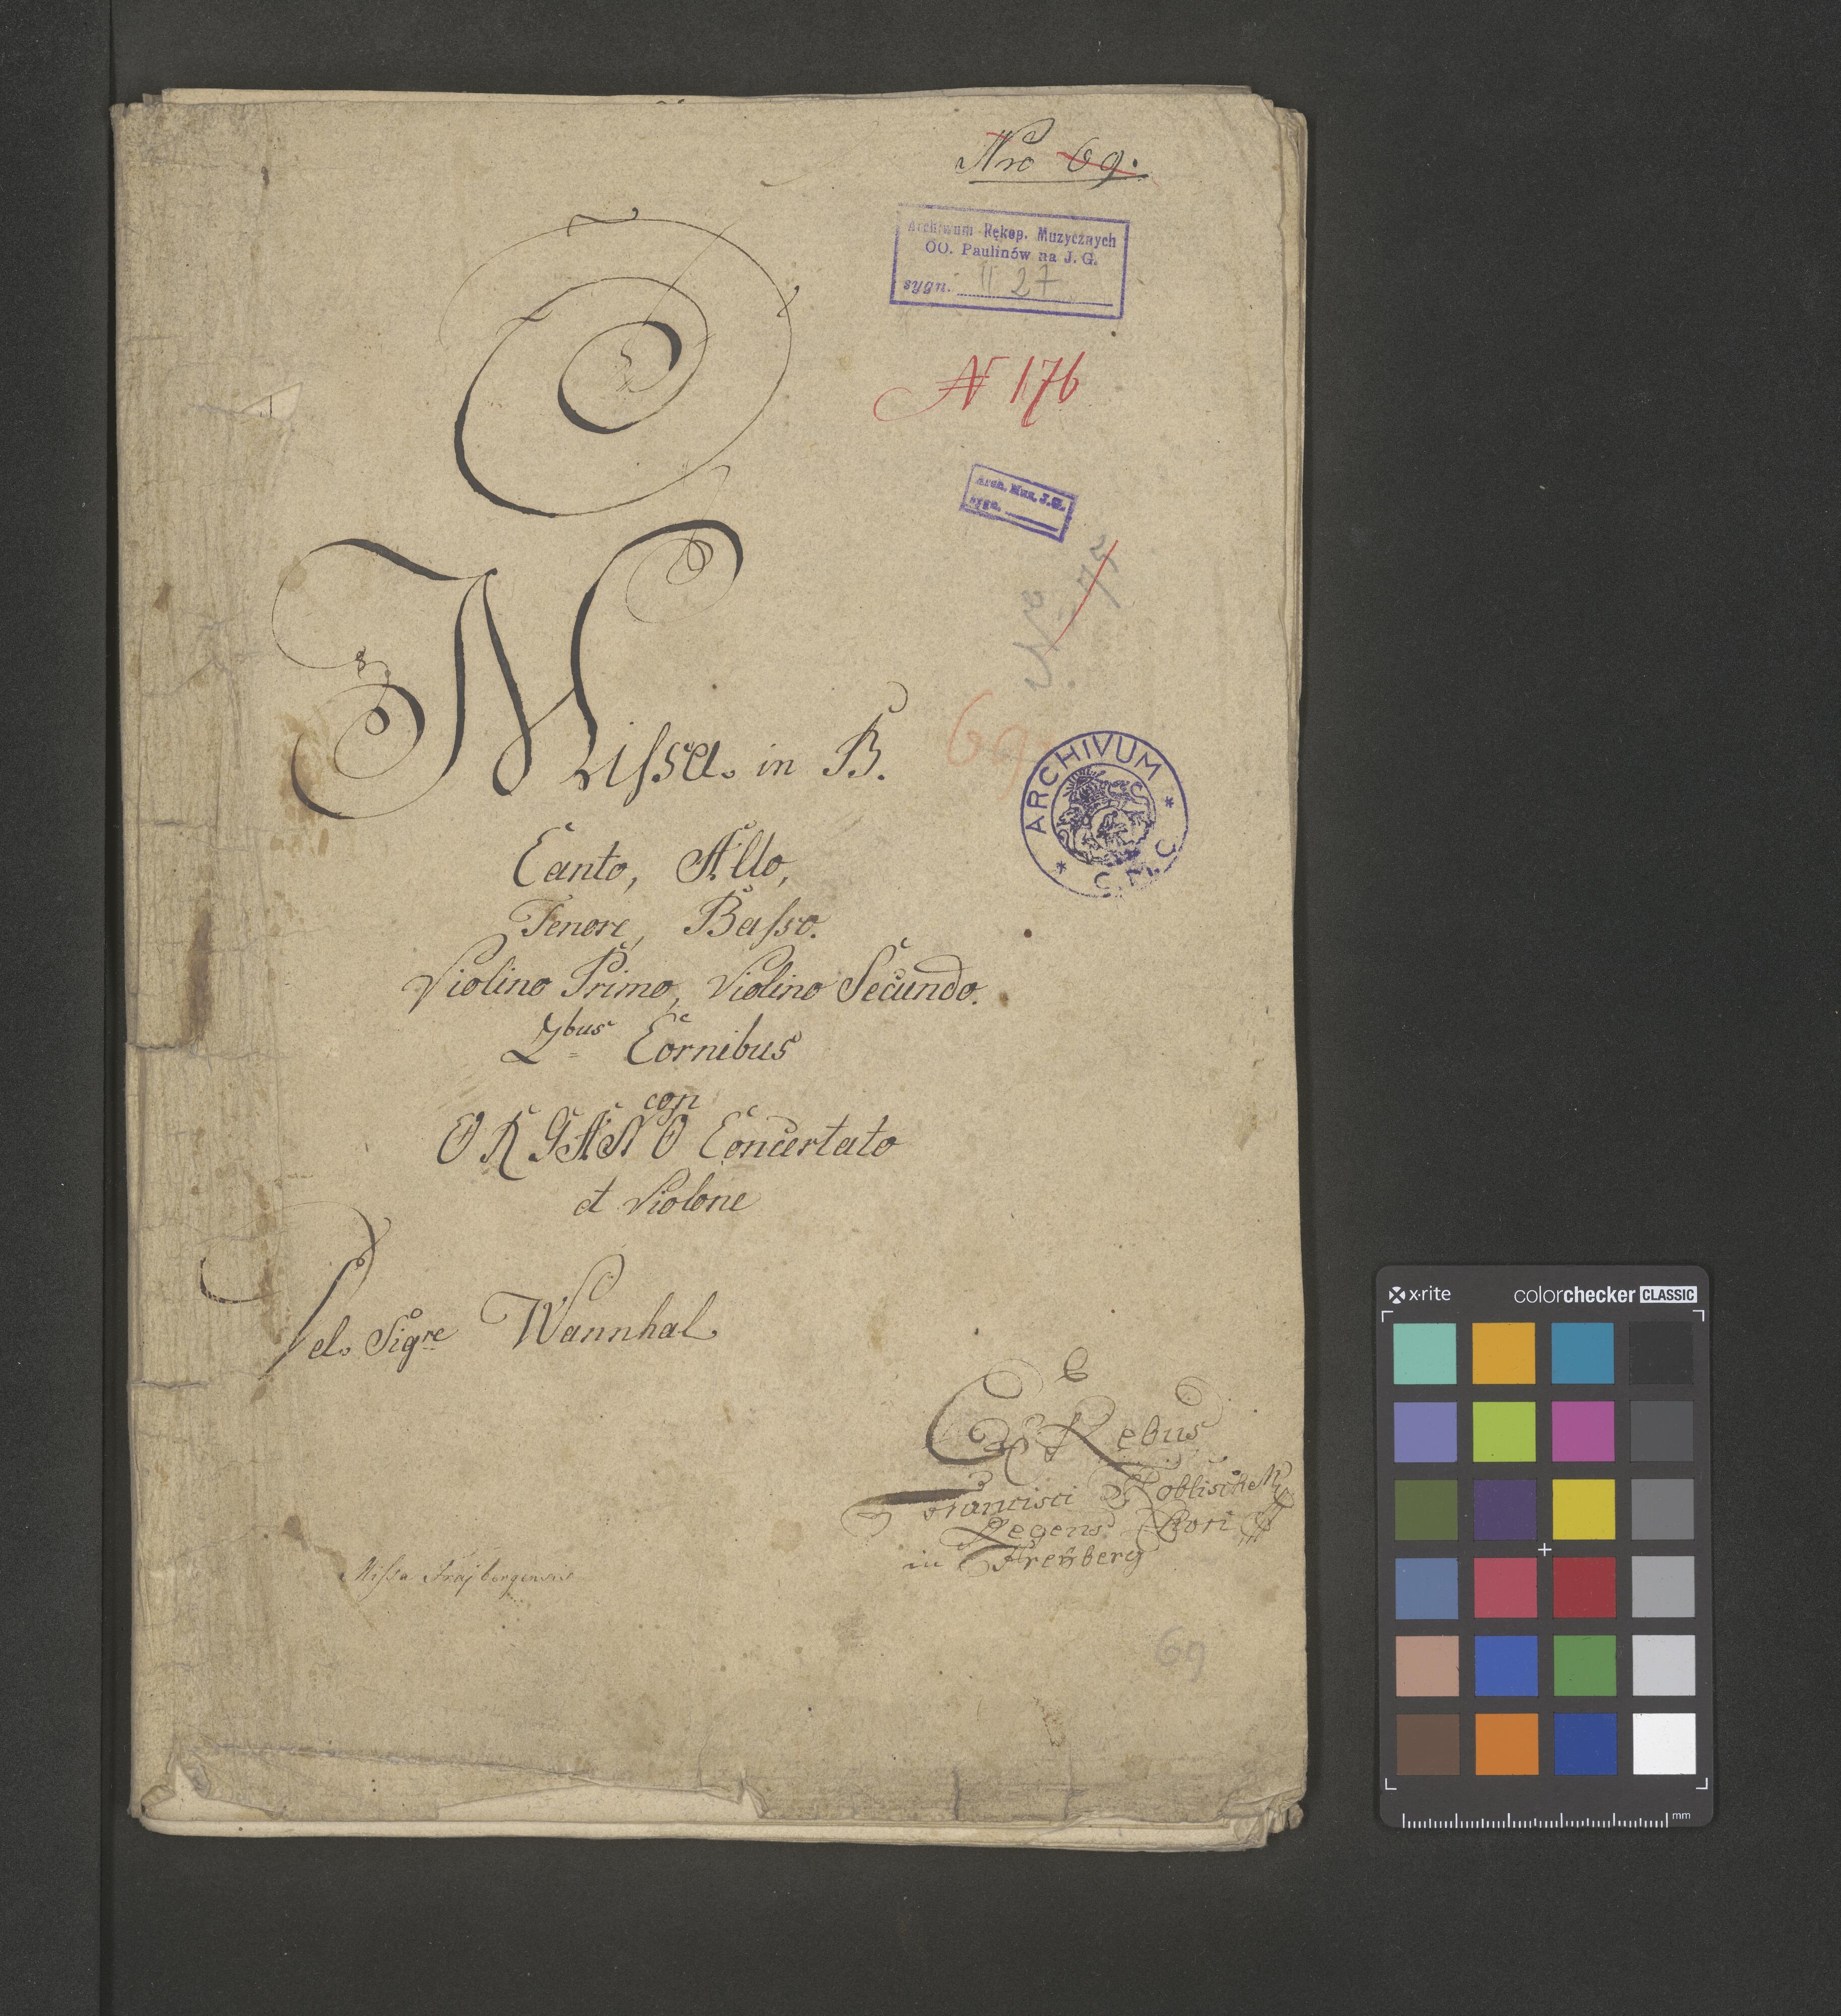 Nro 69.
Archiwum Rękop. Muzycznych
OO. Paulinów na J. G.
sygn. II 27
N 176
Arch. Muz. J.G.
sygn.
N 75
69
Missa. in B.
ARCHIVUM * C.M.C *
Canto, Alto,
Tenore, Basso.
Violino Primo, Violino Secundo.
2bus Cornibus
con
ORGANO Concertato
et Violone
Del Sigre Wannhal
Ex Rebus
Francisci
Regens Chori
in Freÿberg
Missa Frajbergensis
69
x·rite colorchecker CLASSIC
mm